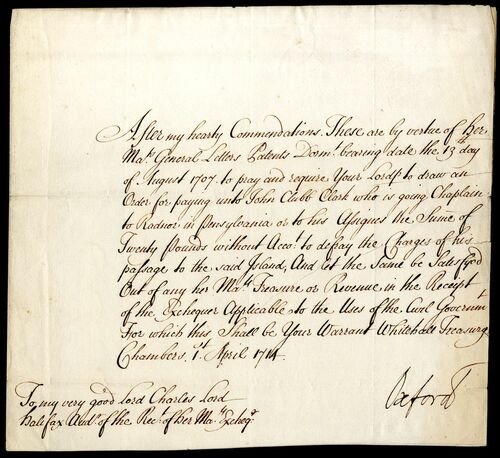 After my hearty Commendations. These are by vertue of Her
Mats. General Letters Patents Dormt. bearing date the 13th day
of August 1707 to pray and require Your Lordp. to draw an
Order for paying unto John Clubb Clark who is going Chaplain
to Radnor in Pensylvania or to his Assignes the Sume of
Twenty Pounds without Accot. to defray the Charges of his
passage to the said Island, And let the Same be Satisfyed
Out of any her Mats. Treasure or Revenue in the Receipt
of the Exchequer Applicable to the Uses of the Civil Governmt.
For which this Shall be Your Warrant Whitehall Treasury
Chambers. 1st. April 1714.
Oxford
To my very good Lord Charles Lord
Halifax Audr. of the Rect. of her Mats. Excheqr.